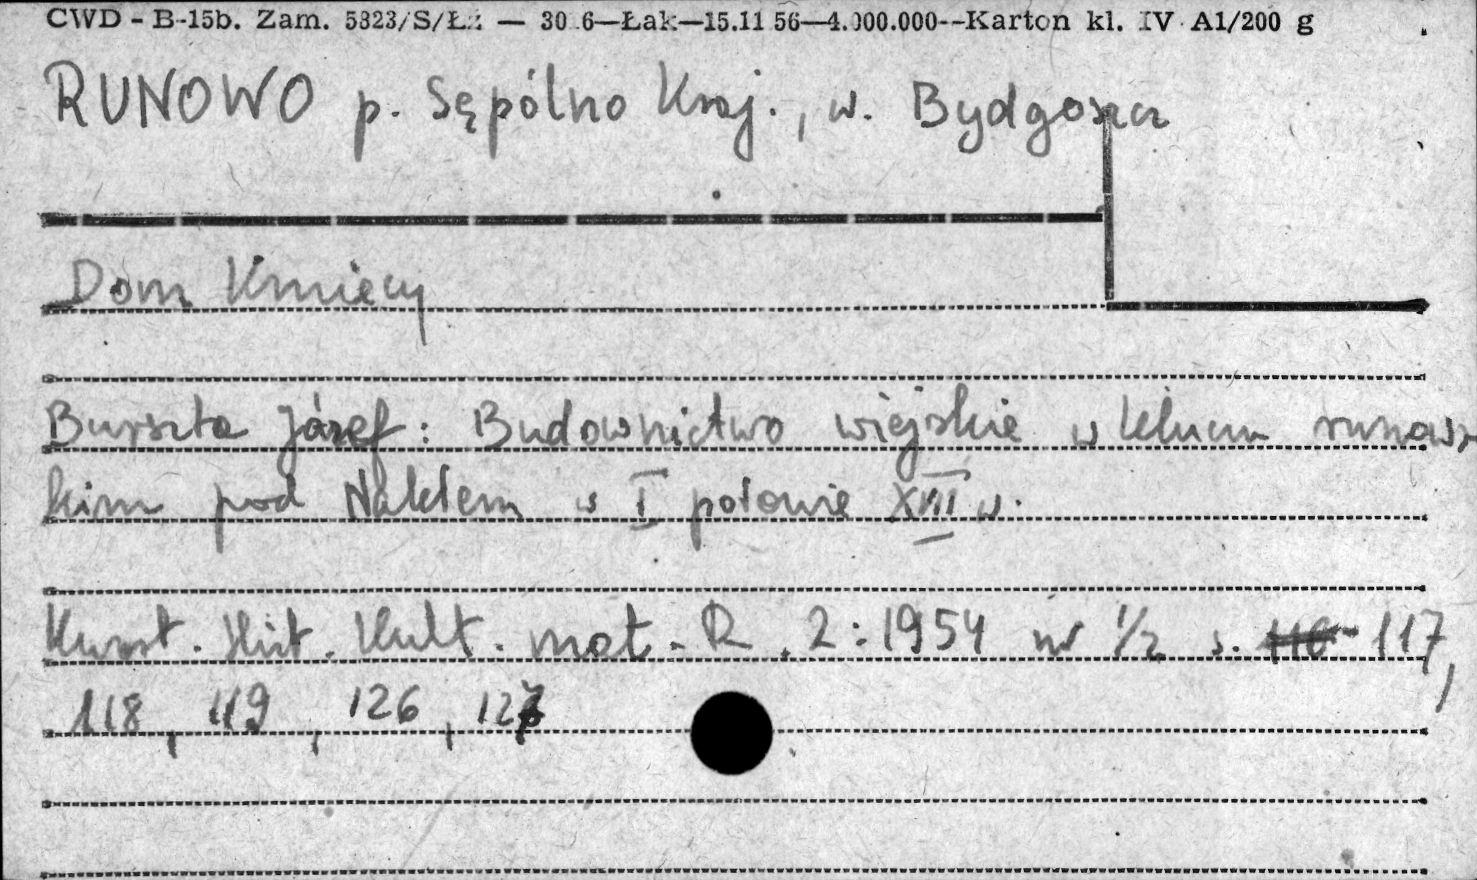 CWD - B-15b. Zam. 5823/S/Łż — 30 6—Łak—15.11 56—4.000.000--Karton kl. IV A1/200 g
RUNOWO p. Sępólno Kraj., w. Bydgoszcz
Dom Kmiecy
Burszta Józef: Budownictwo wiejskie w kluczu runows
kim pod Nakłem w I połowie XVIII w.
Kwart. Hist. Kult. mat. R. 2:1954 nr 1/2 s. 116- 117,
118, 119, 126, 127